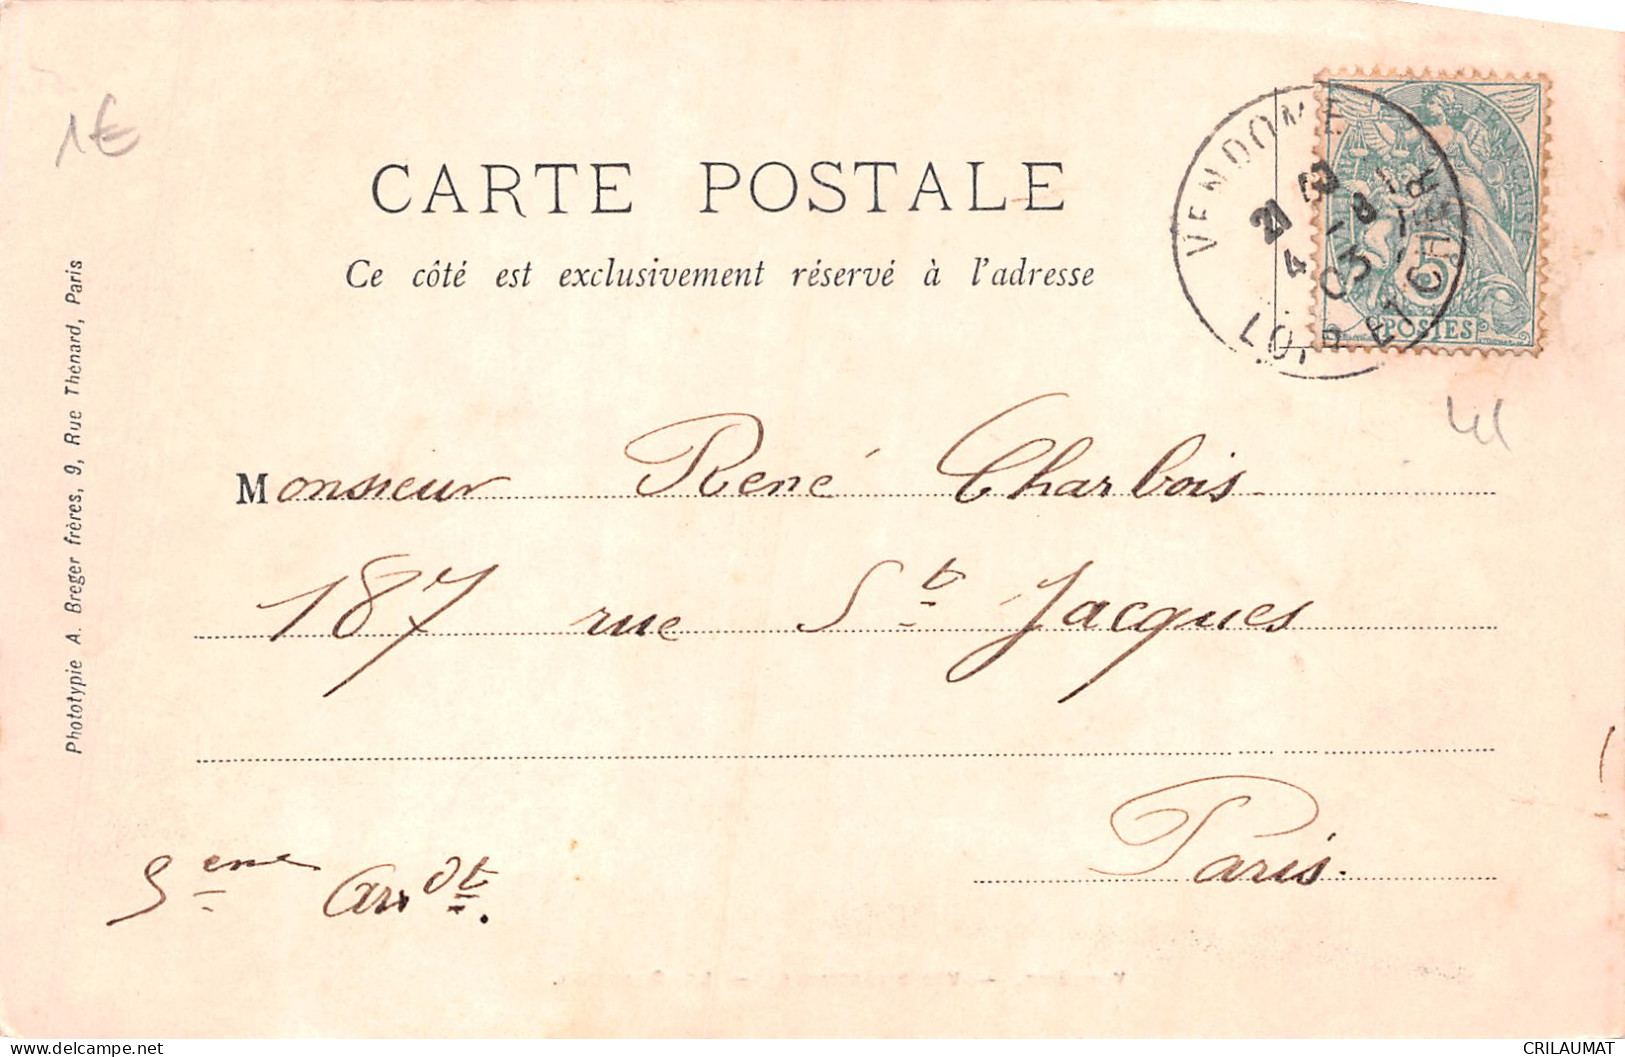 1€
CARTE POSTALE
Ce côté est exclusivement réservé à l'adresse
VENDOME
LOIR ET CHER
21
4
03
FRANÇAISE
5
POSTES
41
Monsieur René Charbois
187 rue St Jacques
Paris.
5eme Arrdt.
Phototypie A. Breger frères, 9, Rue Thénard, Paris
CRILAUMAT